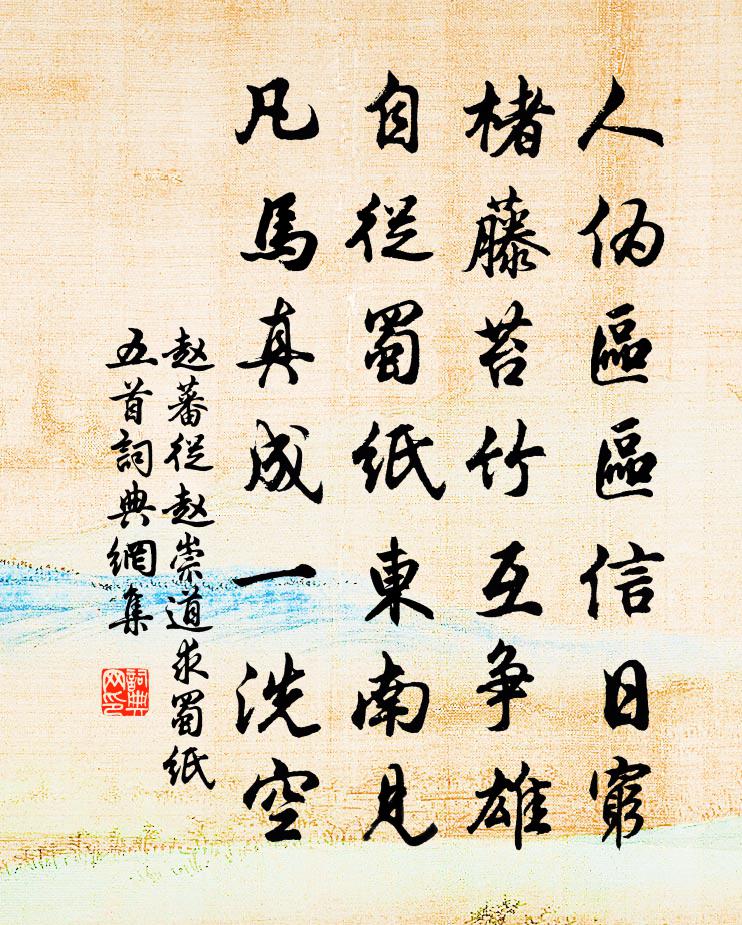 人伪區區信日窮
楮藤苔竹互争雄
自從蜀紙東南見
凡馬真成一洗空
赵蕃從赵崇道求蜀紙
五首詞典網集
詞典网印